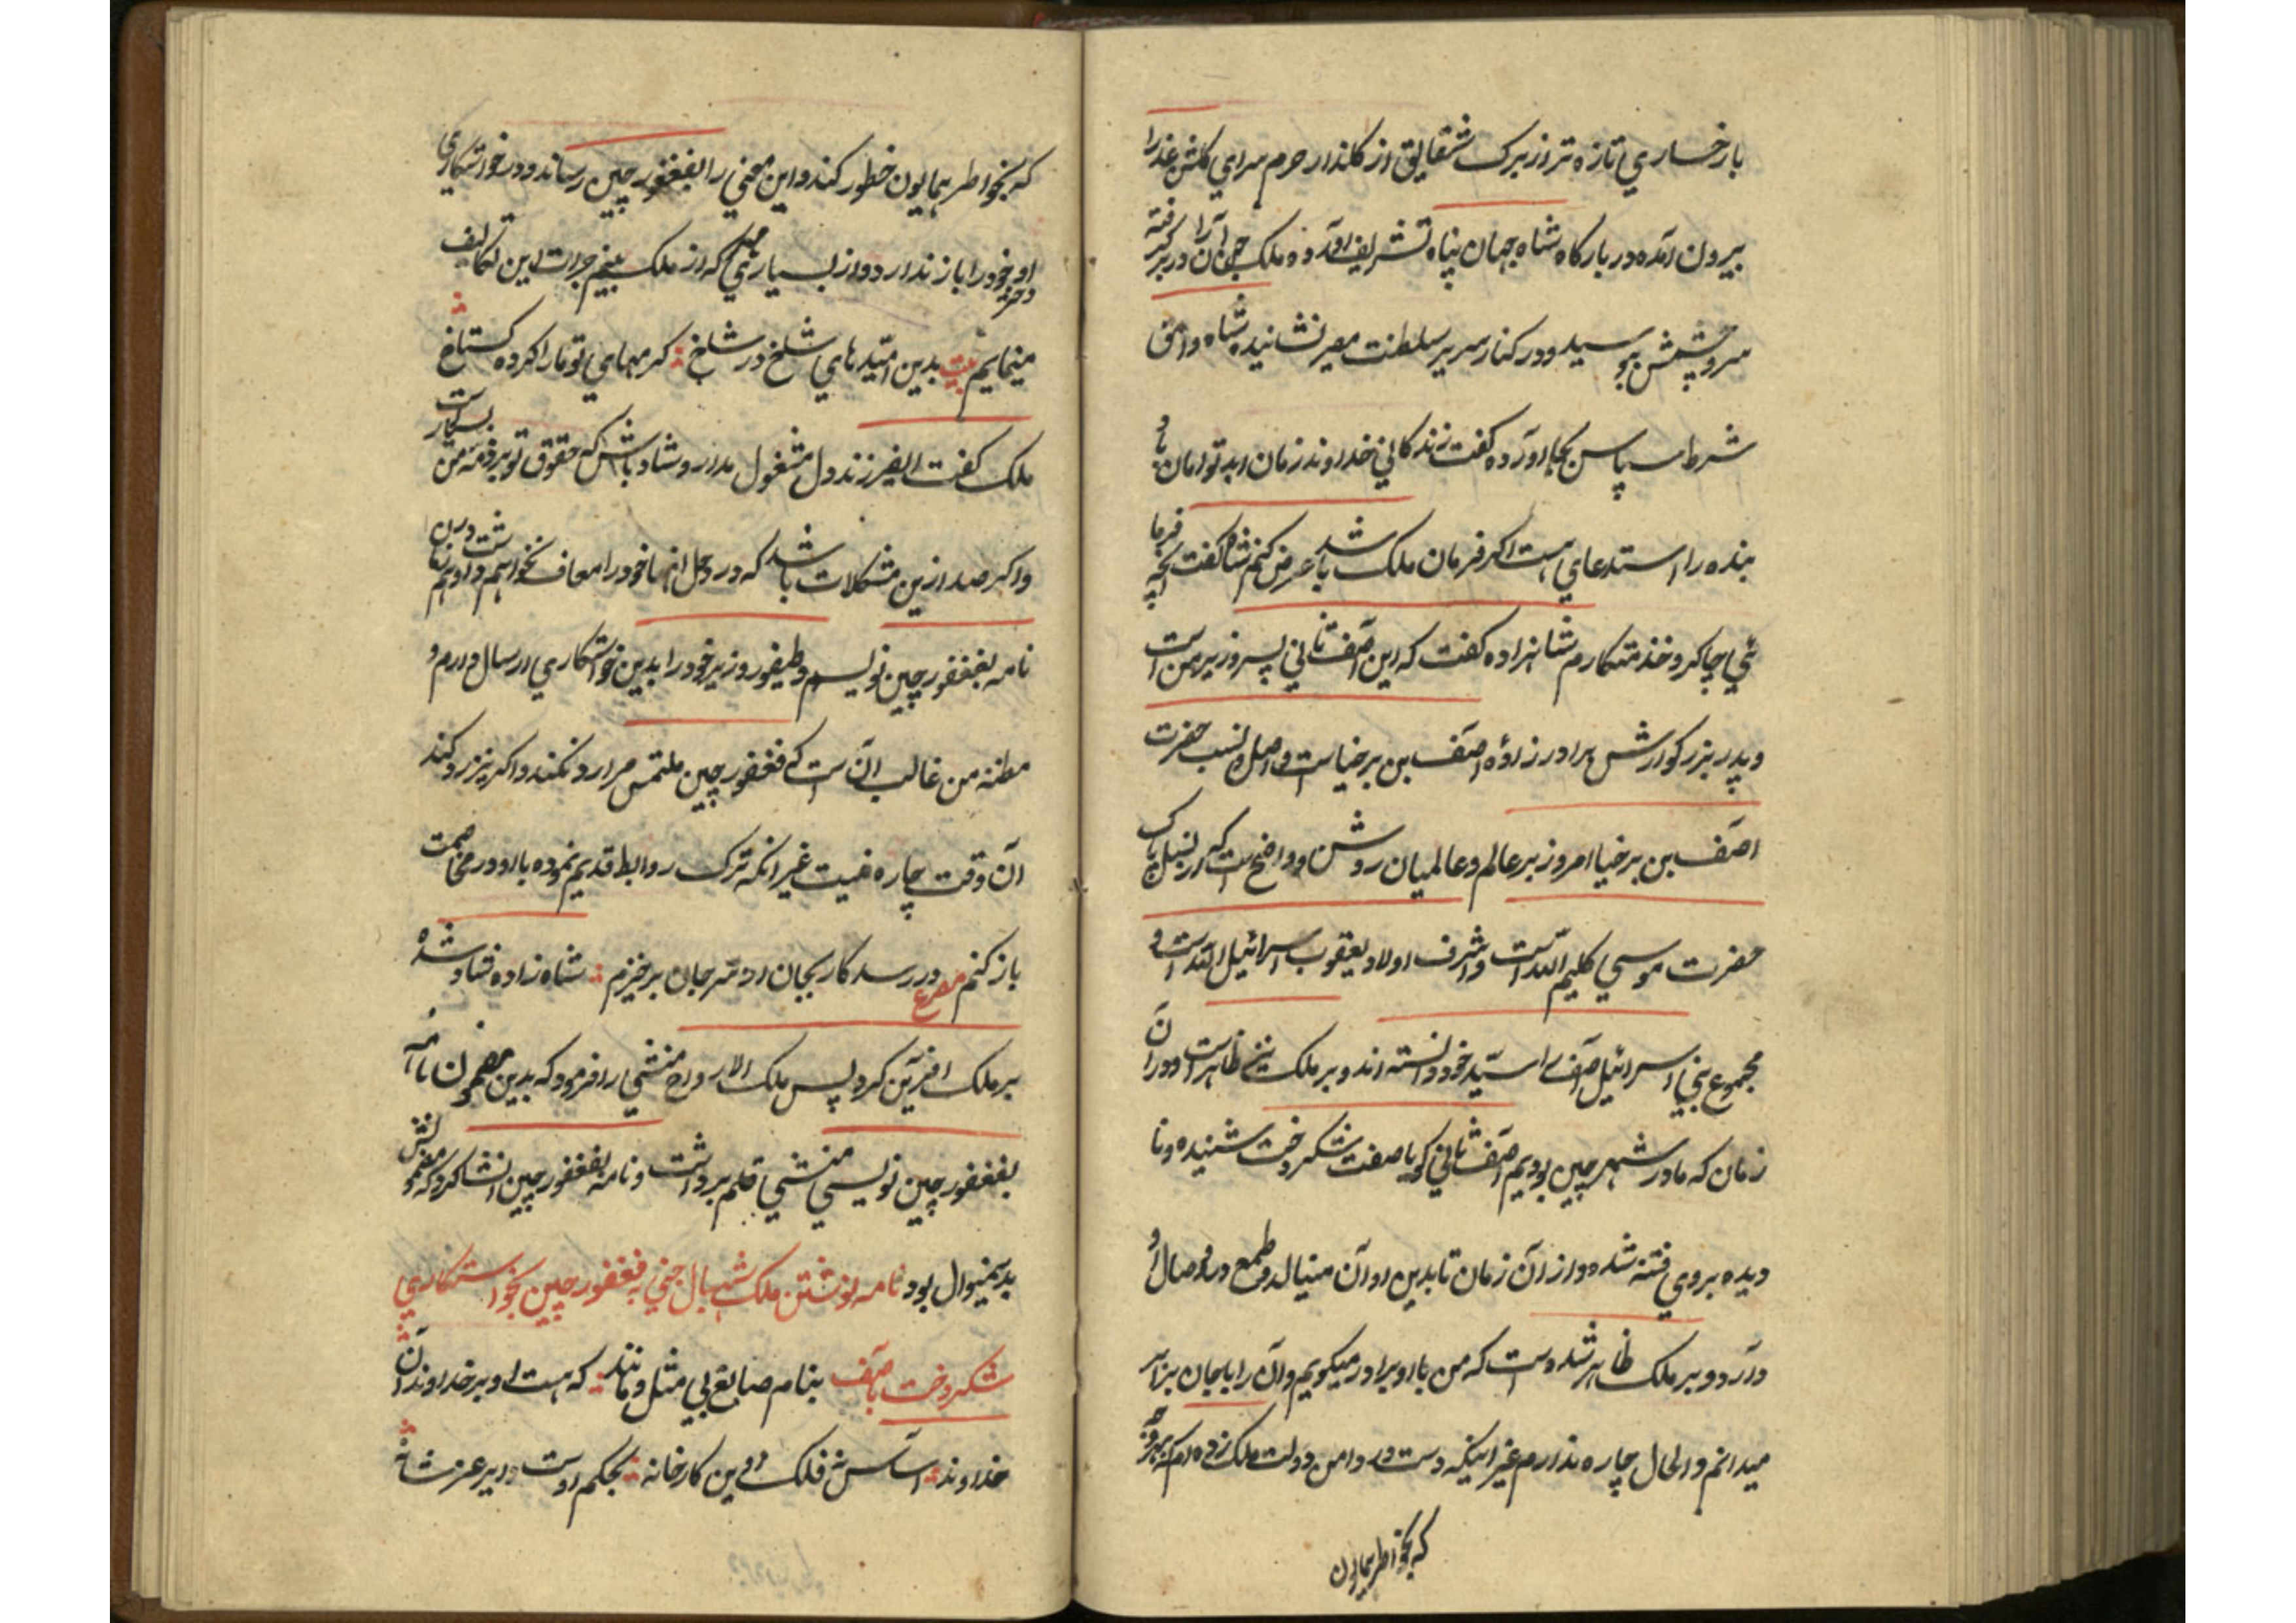 بارخساري تازه تر از برک شقایق از کلذار حرم سراي کلشن عذرا
بیرون آمده در بارکاه شاه جهان پناه تشریف آورده ملک جهان آرا در بر کرفته
سر و چشمش ببوسید و در کنار سریر سلطنت مصر نشانیده شاه وامق
شرط سپاس بجا آورده کفت زندکاني خداوند زمان ابد توامان باد
بنده را استدعاي هست اکر فرمان ملک باشد عرض کنم شاه کفت آنچه فرما
ئي چاکر و خذمتکارم شاهزاده کفت که این آصف ثاني پسر وزیر من است
و پدر بزرکوارش برادرزاده آصف بن برخیاست و اصل و نسب حضرت
آصف بن برخیا امروز بر عالم و عالمیان روشن و واضح است که از نسل پاک
حضرت موسي کلیم الله است و اشرف اولاد یعقوب اسرائیل الله است و
مجموع بني اسرائیل آصف را سیّد خود دانسته اند و بر ملک نیز ظاهر است و در آن
زمان که ما در شهر چین بودیم آصف ثاني کویا صفت شکردخت شنیده و نا
دیده بروي فتنه شده و از آن زمان تا بدین اوآن منیالد و طمع در وصال او
دارد و بر ملک ظاهر شده است که من با او برادر میکویم و آن را با جان برابر
میدانم و الحال چاره ندارم غیر اینکه دست در دامن دولت ملک زده ام که
که بخواطر همایون
که بخواطر همایون خطور کند و این معني را بفغفور چین رساند و در خواستکاري
دختر او خود را باز ندارد و از بسیار مهري که از ملک بینم جرات این تکالیف
مینمایم بیت بدین امّیدهاي شاخ در شاخ ؛ کرمهاي تو ما را کرده کستاخ
ملک کفت ایفرزند دل مشغول مدار و شاد باش که حقوق تو بر ذمه من بسیار است
و اکر صد ازین مشکلات باشد که در حل آنها خود را معاف نخواهم داشت و درین
نامه بفغفور چین نویسم و طیفور وزیر خود را بدین خواستکاري ارسال دارم و
مظنه من غالب آن است که فغفور چین ملتمس مرا رد نکند و اکر نیز رد کند
آن وقت چاره نیست غیر آنکه ترک روابط قدیم نموده با او در مخاصمت
باز کنم مصرع ور رسد کار بجان از سر جان برخیزم ؛ شاه زاده شاد شده
بر ملک آفرین کرد پس ملک الارواح منشي را فرمود که بدین مضمون نامه
بفغفور چین نویسي منشي قلم برداشت و نامه بفغفور چین انشا کرد که مضمونش
بدینمنوال بود نامه نوشتن ملک شهبال جني به فغفور چین بخواستکاري
شکردخت بآصف بنام صانع بي مثل و مانند ؛ که هست او بر خداوندان
خداوند ؛ آساس نه فلک زین کارخانه ؛ بحکم اوست